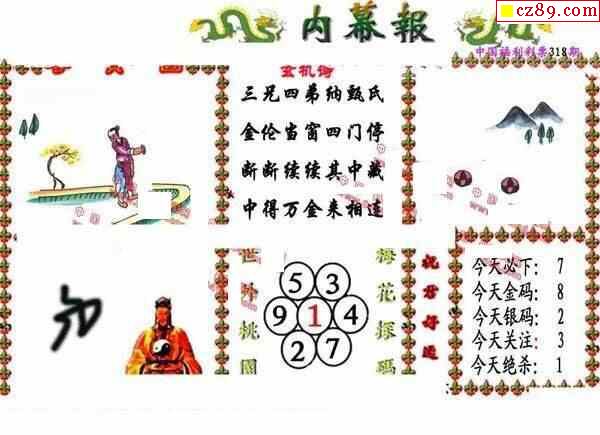 cz89.com
内幕報
中国福利彩票318期
玄机诗
三兄四弟纳甄氏
金伦当窗四门停
断断续续其中藏
中得万金来相连
世外桃園
梅花探码
5 3
9 1 4
2 7
祝君好运
今天必下: 7
今天金码: 8
今天银码: 2
今天关注: 3
今天绝杀: 1